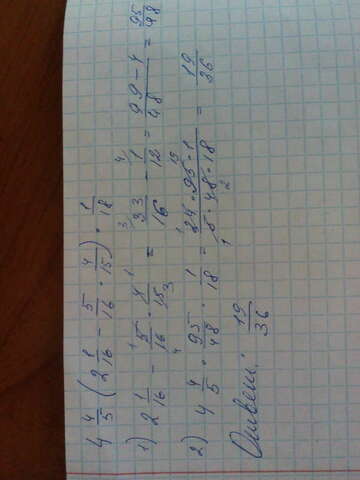 4 4/5 (2 1/16 - 5/16 · 4/15) · 1/18
1) 2 1/16 - 5/16 · 4/15 = 33/16 - 1/12 = 99-4/48 = 95/48
2) 4 4/5 · 95/48 · 1/18 = 24·95·1/5·48·18 = 19/36
Ответ: 19/36